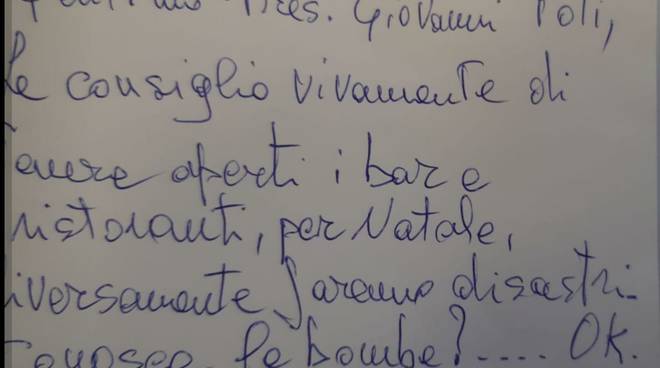 Pres. Giovanni Poli,
le consiglio vivamente di
tenere aperti i bar e
ristoranti, per Natale,
diversamente faremo disastri.
Conosce le bombe?.... OK.